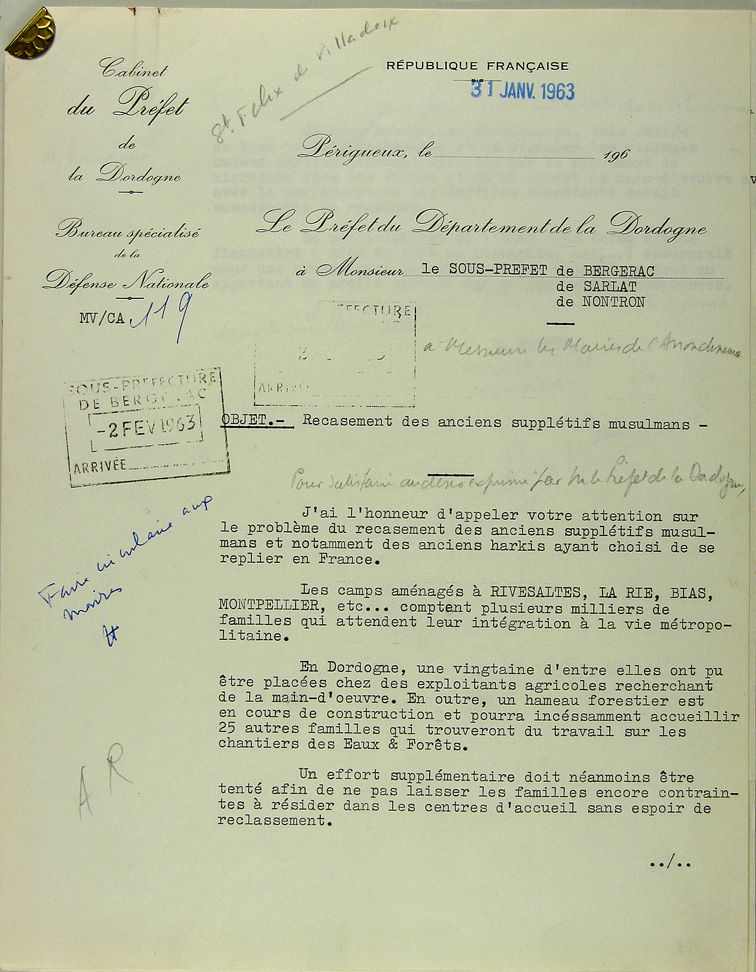 Cabinet
du Préfet
de
la Dordogne
Bureau spécialisé
de la
Défense Nationale
MV/CA 119
St. Felix de Villadeix
RÉPUBLIQUE FRANÇAISE
31 JANV. 1963
Périgueux, le 196
Le Préfet du Département de la Dordogne
à Monsieur le SOUS-PREFET de BERGERAC
de SARLAT
de NONTRON
à Messieurs les Maires de l'Arrondissement
SOUS-PREFECTURE
DE BERGERAC
-2 FEV 1963
ARRIVÉE
OBJET.- Recasement des anciens supplétifs musulmans -
Pour satisfaire au désir exprimé par M. le Préfet de la Dordogne,
J'ai l'honneur d'appeler votre attention sur
le problème du recasement des anciens supplétifs musul-
mans et notamment des anciens harkis ayant choisi de se
replier en France.
Faire circulaire aux
maires
Les camps aménagés à RIVESALTES, LA RIE, BIAS,
MONTPELLIER, etc... comptent plusieurs milliers de
familles qui attendent leur intégration à la vie métropo-
litaine.
En Dordogne, une vingtaine d'entre elles ont pu
être placées chez des exploitants agricoles recherchant
de la main-d'oeuvre. En outre, un hameau forestier est
en cours de construction et pourra incéssamment accueillir
25 autres familles qui trouveront du travail sur les
chantiers des Eaux & Forêts.
AR
Un effort supplémentaire doit néanmoins être
tenté afin de ne pas laisser les familles encore contrain-
tes à résider dans les centres d'accueil sans espoir de
reclassement.
../..